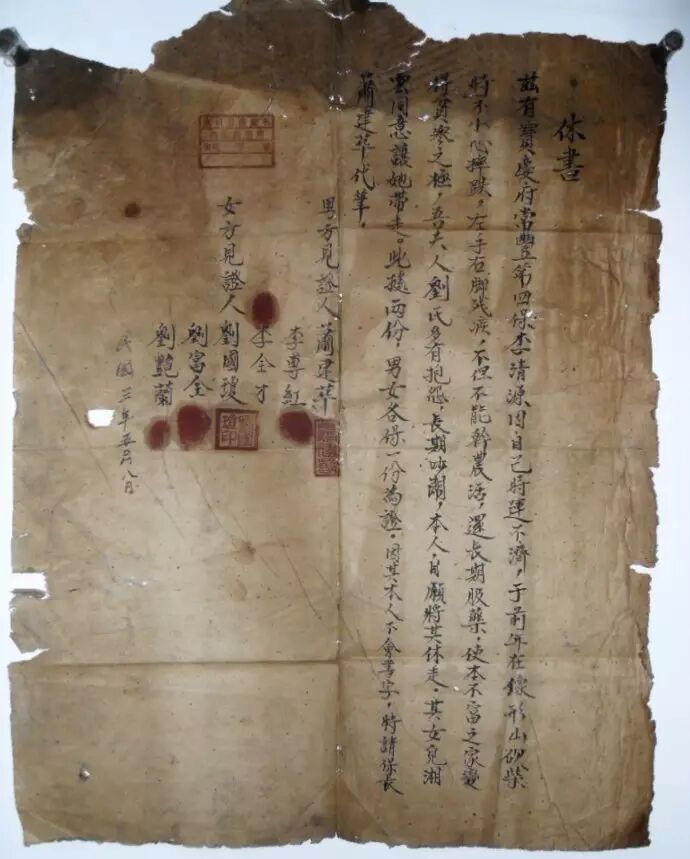 休書
茲有寶慶府常豐第四保李清源因自己時運不濟，于前年在鐌形山砍柴
時不小心摔跌，左手右脚残疾，不但不能幹農活，還長期服藥，使本不富之家變
得貧寒之極，吾夫人劉氏多有抱怨，長期吵鬧，本人自願將其休走。其女兒湘
雲同意讓她带走。此據两份，男女各保一份為證。因其本人不會寫字，特請保長
蕭建華代筆。
男方見證人 蕭建華
李專紅
李全才
女方見證人 劉國璦
劉富全
劉艷蘭
民國三年五月八日